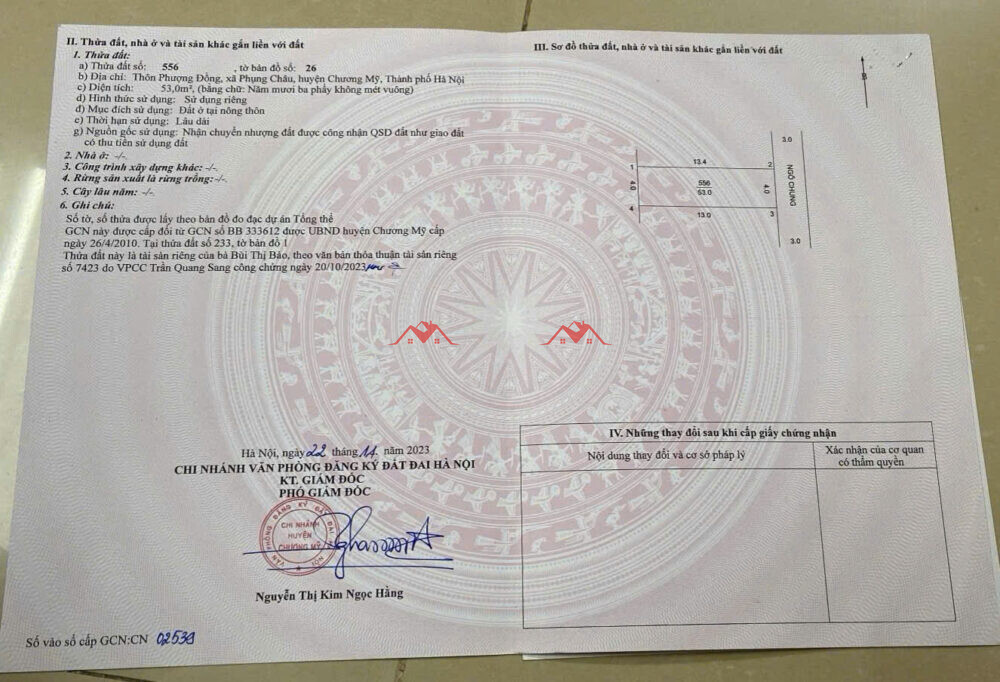 II. Thửa đất, nhà ở và tài sản khác gắn liền với đất
1. Thửa đất:
a) Thửa đất số: 556 , tờ bản đồ số: 26
b) Địa chỉ: Thôn Phượng Đồng, xã Phụng Châu, huyện Chương Mỹ, Thành phố Hà Nội
c) Diện tích: 53,0m², (bằng chữ: Năm mươi ba phẩy không mét vuông)
d) Hình thức sử dụng: Sử dụng riêng
đ) Mục đích sử dụng: Đất ở tại nông thôn
e) Thời hạn sử dụng: Lâu dài
g) Nguồn gốc sử dụng: Nhận chuyển nhượng đất được công nhận QSD đất như giao đất
có thu tiền sử dụng đất
2. Nhà ở: -/-
3. Công trình xây dựng khác: -/-
4. Rừng sản xuất là rừng trồng: -/-
5. Cây lâu năm: -/-
6. Ghi chú:
Số tờ, số thửa được lấy theo bản đồ đo đạc dự án Tổng thể
GCN này được cấp đổi từ GCN số BB 333612 được UBND huyện Chương Mỹ cấp
ngày 26/4/2010. Tại thửa đất số 233, tờ bản đồ 1
Thửa đất này là tài sản riêng của bà Bùi Thị Bảo, theo văn bản thỏa thuận tài sản riêng
số 7423 do VPCC Trần Quang Sang công chứng ngày 20/10/2023
Hà Nội, ngày 22 tháng 11 năm 2023
CHI NHÁNH VĂN PHÒNG ĐĂNG KÝ ĐẤT ĐAI HÀ NỘI
KT. GIÁM ĐỐC
PHÓ GIÁM ĐỐC
VĂN PHÒNG ĐĂNG KÝ ĐẤT ĐAI
CHI NHÁNH
HUYỆN
CHƯƠNG MỸ
NỘI
Nguyễn Thị Kim Ngọc Hằng
Số vào sổ cấp GCN:CN 02539
III. Sơ đồ thửa đất, nhà ở và tài sản khác gắn liền với đất
B
3.0
1 13.4 2
4.0 556 4.0
53.0
NGÕ CHUNG
4 13.0 3
3.0
IV. Những thay đổi sau khi cấp giấy chứng nhận
Nội dung thay đổi và cơ sở pháp lý
Xác nhận của cơ quan
có thẩm quyền